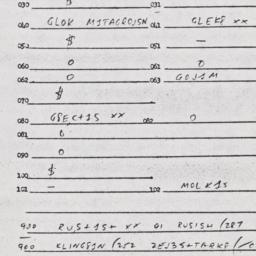 030 031
040 GLOK MJTACROJSN 041 GLEKF xx
$ 051 —
052
060 0 061 0
062 0 063 GOJIM
070 $
080 GSEC+1S xx 0
081 0
090 0
100 $
101 — 102 MOLK1S
930 RUS+1S+ xx 01 RUSISH /287
900 KLINGSIN /252